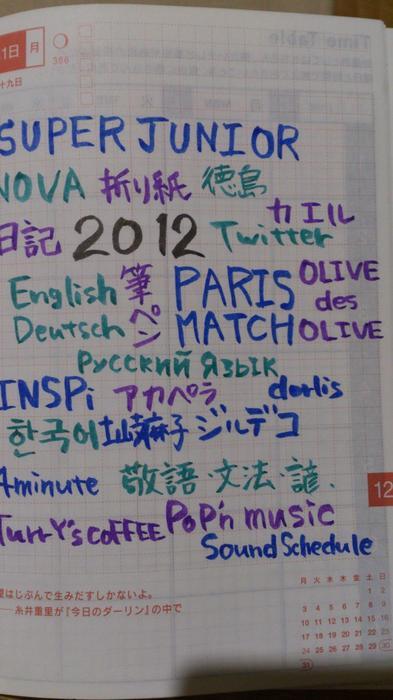 1日 月
366
十九日
Time Table
SUPER JUNIOR
NOVA 折り紙 徳島
カエル
日記 2012 Twitter
English 筆ペン PARIS OLIVE
des
Deutsch MATCH OLIVE
Русский Язык
INSPi アカペラ dorlis
한국어 土山麻子 ジルデコ
4minute 敬語 文法 諺.
TurrY's COFFEE Pop'n music
Sound Schedule
12
はじぶんで生みだすしかないよ。
──糸井重里が『今日のダーリン』の中で
月 火 水 木 金 土 日
1 2
3 4 5 6 7 8 9
10 11 12 13 14 15 16
17 18 19 20 21 22 23
24 25 26 27 28 29 30
31